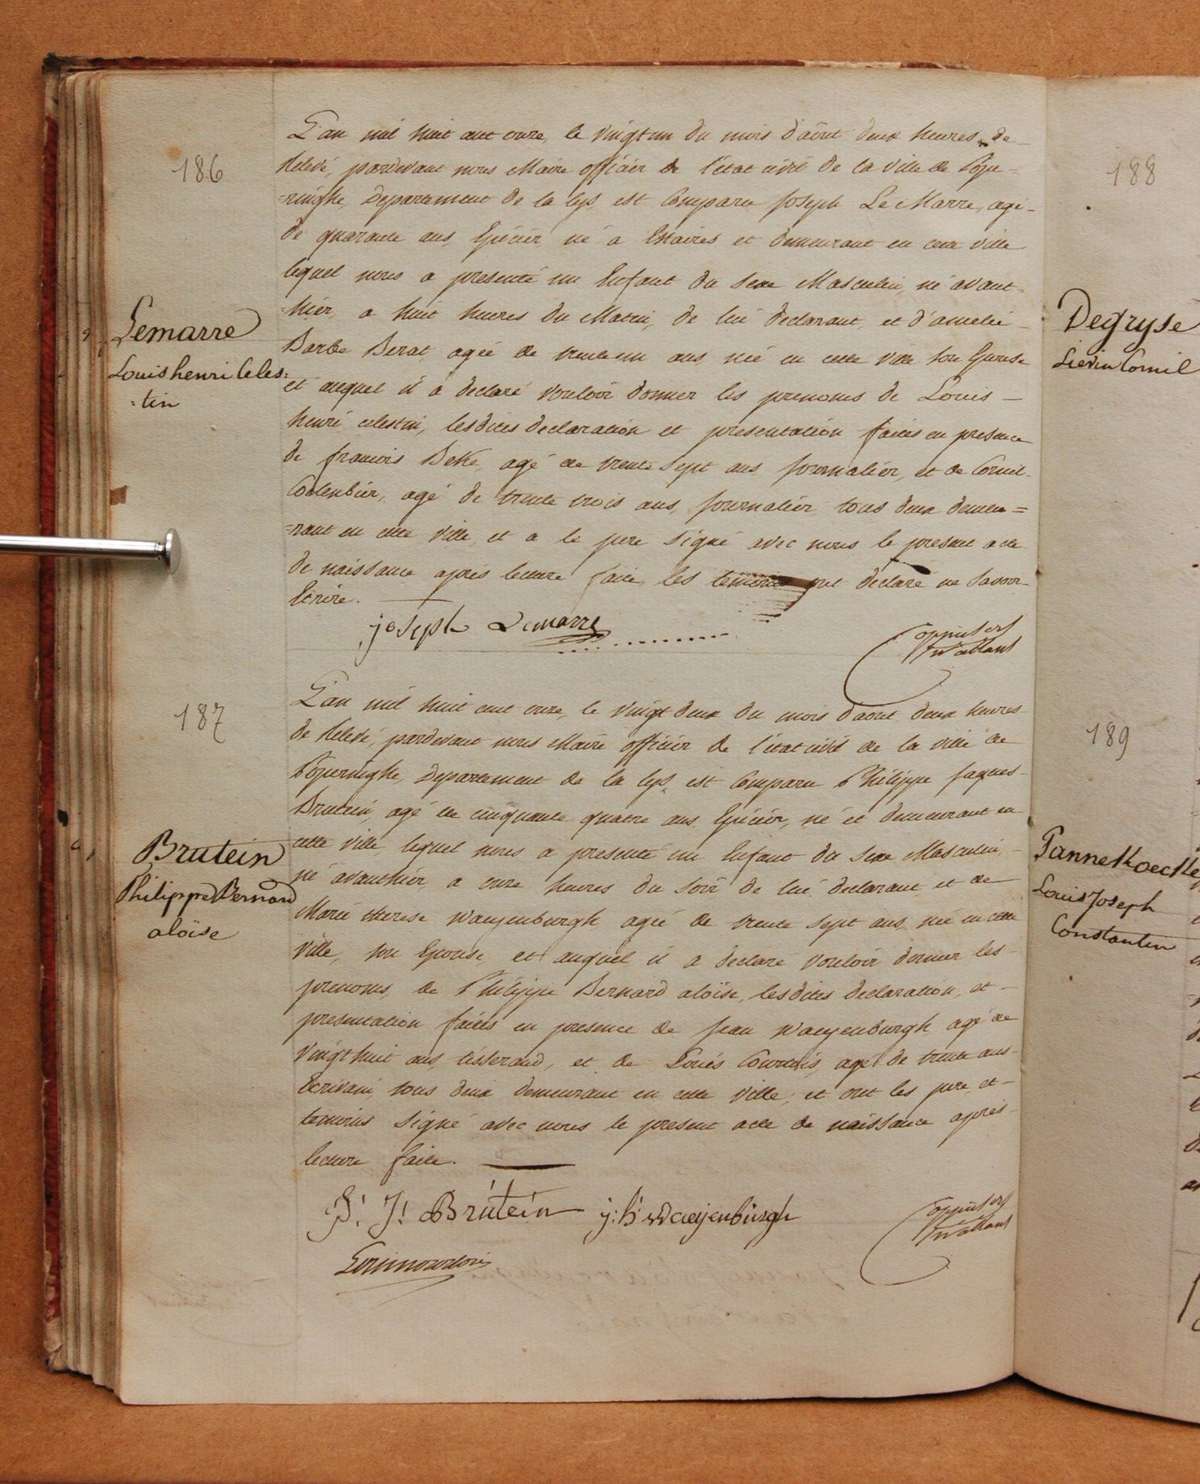 186
Lemarre
Louis henri Celes=
=tin
L'an mil huit cent onze, le vingtun du mois d'août deux heures de
Relevé, pardevant nous Maire officier de l'état civil de la ville de Pope=
=ringhe, Departement de la Lys, est Comparu Joseph Le Marre, agé
de quarante ans, Epicier né a Estaires et demeurant en cette ville
lequel nous a presenté un Enfant du Sexe Masculin, né avant
hier, a huit heures du Matin, de lui declarant, et d'amelie
Barbe Berat agée de trente un ans, née en cette ville son Epouse
et auquel il a declaré vouloir donner les prenoms de Louis
henri celestin, lesdites declaration et presentation faites en presence
de francois Beke, agé de trente sept ans journalier, et de Cornil
Coolenbier, agé de trente trois ans, journalier tous deux demeu=
=rant en cette ville, et a le pere signé avec nous le present acte
de naissance après lecture faite, les temoins ont declaré ne savoir
Ecrire.
joseph Lemarre
187
Brutein
Philippe Bernard
aloïse
L'an mil huit cent onze, le vingt deux du mois d'aout deux heures
de Relevé, pardevant nous Maire officier de l'état civil de la ville de
Poperinghe, Departement de la Lys, est Comparu Philippe Jaques
Brutein, agé de cinquante quatre ans Epicier, né et demeurant en
cette ville lequel nous a presenté un Enfant du Sexe Masculin,
né avanthier, a onze heures du Soir de lui declarant et de
Marie therese Waeyenburgh agée de trente sept ans, née en cette
ville, son Epouse et auquel il a declaré vouloir donner les
prenoms, de Philippe Bernard aloïse, lesdites declaration, et
presentation faites en presence de Jean Waeyenburgh agé de
vingthuit ans, tisserand, et de Louis Courtois, agé de trente ans
Ecrivain, tous deux demeurant en cette ville, et ont les pere et
temoins signé avec nous le present acte de naissance après
lecture faite.
P: J: Brutein j: b: Waeyenburgh
188
Degryse
Lievin Cornil
189
Pannekoecke
Louis Joseph
Constantin